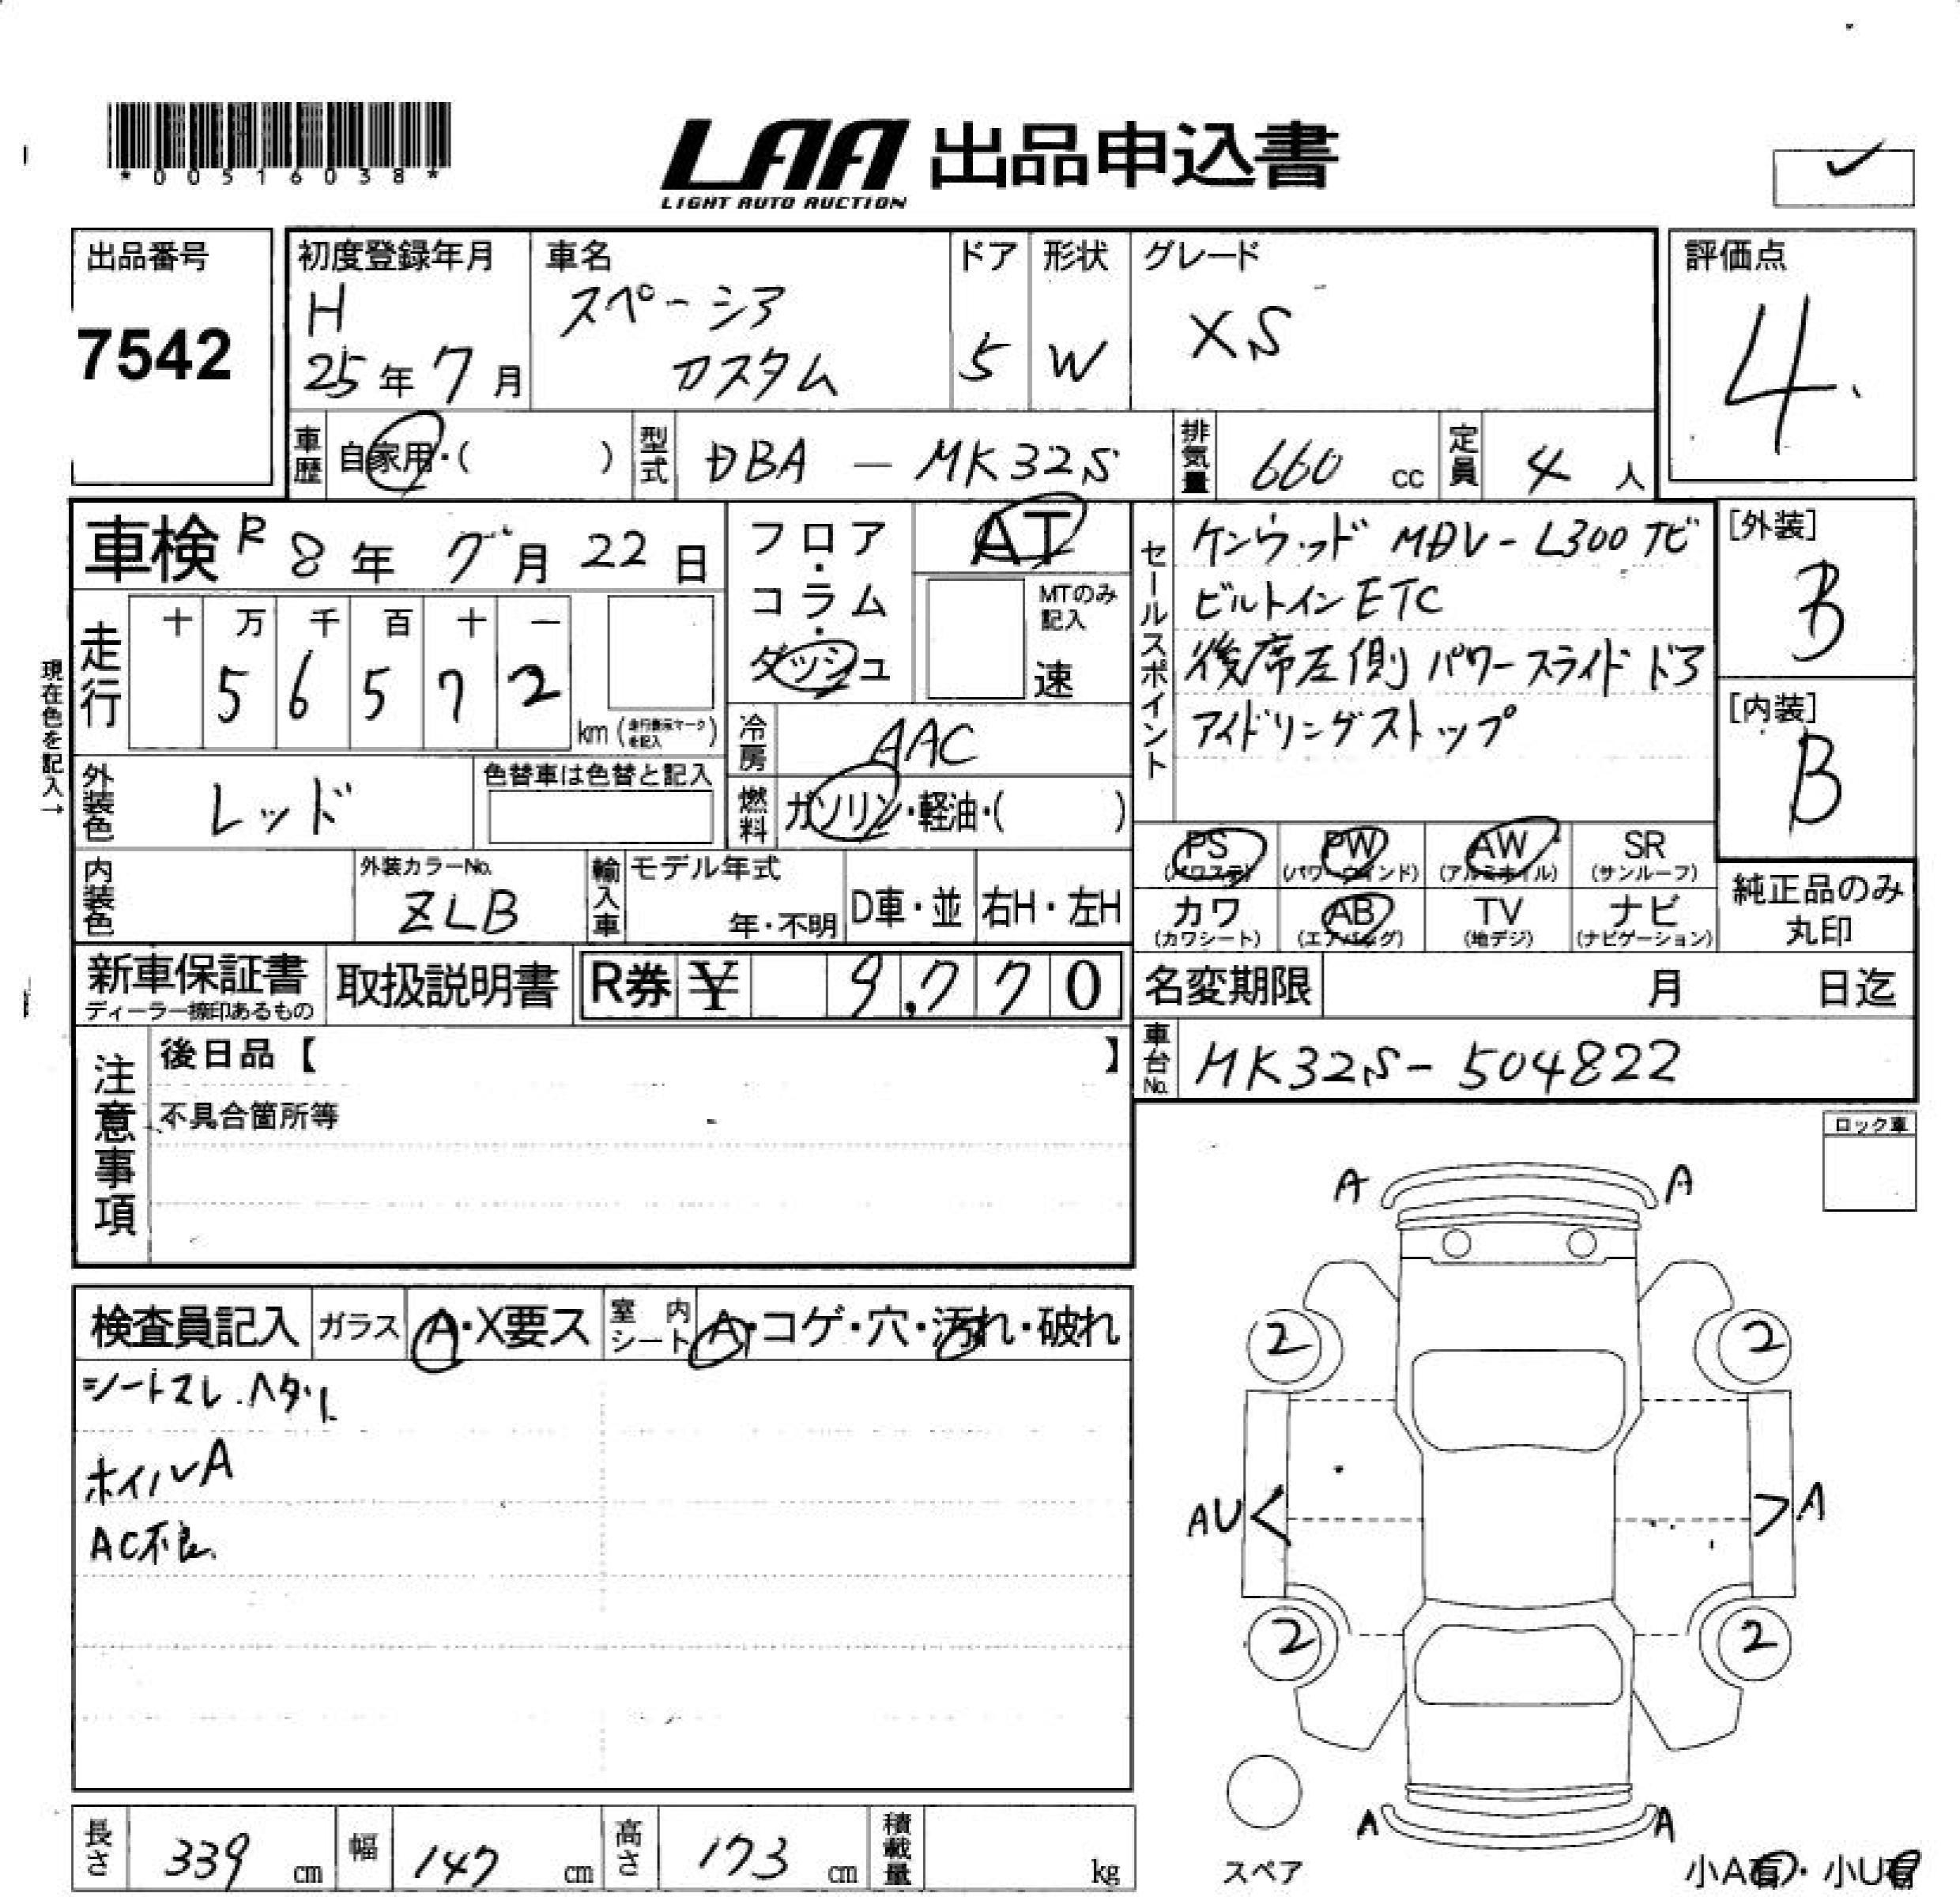 *00516038*
LAA 出品申込書
LIGHT AUTO AUCTION
出品番号
7542
初度登録年月
H
25年7月
車名
スペーシア
カスタム
ドア
5
形状
W
グレード
XS
評価点
4
車歴 自家用・( )
型式 DBA - MK32S
排気量 660 cc
定員 4 人
車検 R 8年 7月 22日
フロア・コラム・ダッシュ
AT
MTのみ記入
速
走行
十 万 千 百 十 一
5 6 5 7 2
km (走行表示マークを記入)
現在色を記入→
冷房 AAC
燃料 ガソリン・軽油・( )
外装色 レッド
色替車は色替と記入
内装色
外装カラーNo.
ZLB
輸入車
モデル年式
年・不明
D車・並
右H・左H
セールスポイント
ケンウッド MDV-L300 ナビ
ビルトインETC
後席左側 パワースライドドア
アイドリングストップ
[外装]
B
[内装]
B
PS (パワステ)
PW (パワーウインド)
AW (アルミホイル)
SR (サンルーフ)
カワ (カワシート)
AB (エアバッグ)
TV (地デジ)
ナビ (ナビゲーション)
純正品のみ
丸印
新車保証書
ディーラー捺印あるもの
取扱説明書
R券 ¥ 9,770
名変期限 月 日迄
車台No. MK32S-504822
注意事項
後日品【 】
不具合箇所等
ロック車
検査員記入
ガラス A・X要ス
室内シート A・コゲ・穴・汚れ・破れ
シートスレ.ヘタリ
ホイルA
AC不良
A A
2 2
AU A
2 2
A A
スペア
小A有・小U有
長さ 339 cm
幅 147 cm
高さ 173 cm
積載量 kg